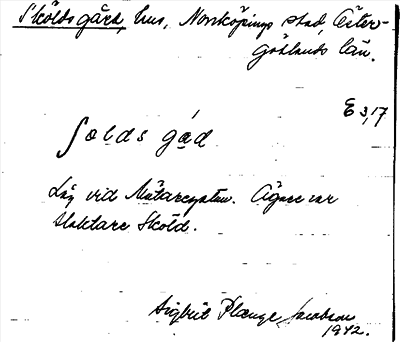 Skölds gård, hus, Norrköpings stad, Öster-
götlands län.
E 3,17
ʃolds gɑ́d
Låg vid Mätaregatan. Ägare var
slaktare Sköld.
Sigbrit Plænge Jacobson
1942.